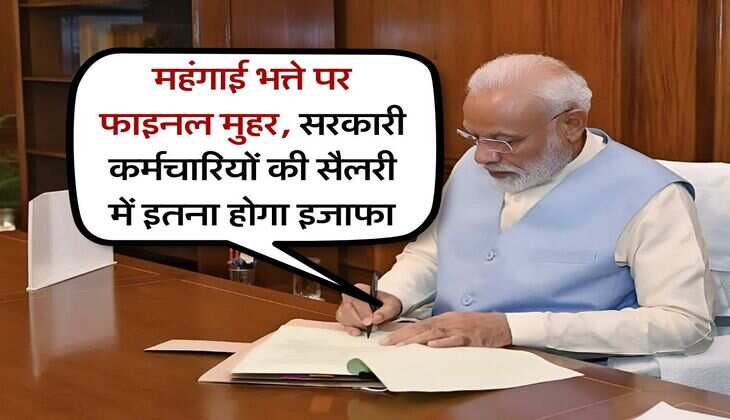 महंगाई भत्ते पर
फाइनल मुहर, सरकारी
कर्मचारियों की सैलरी
में इतना होगा इजाफा